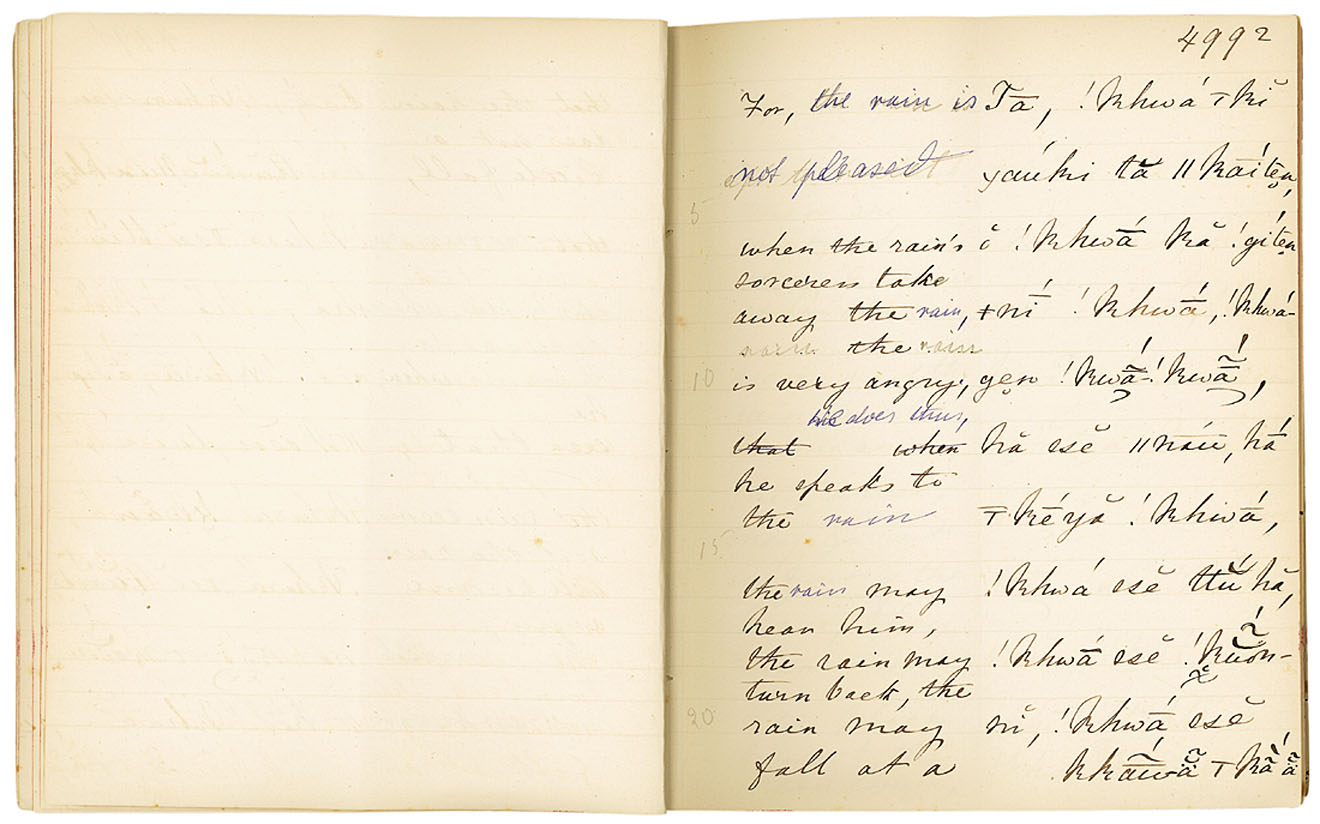 4992
For, the rain is Tā, !khwá ⊤kĭ
not pleased yaúki tă ǁkaítẹn,
5
when the rain's ĭ !khwā́ kă !gítẹn
sorcerers take
away the rain, ǂní !khwā́, !khwá-
rain the rain
10 is very angry, gẹn !kwā̃́-!kwā̃́,
he does thus,
that when hă esĕ ǁnáu, hā́
he speaks to
the rain ⊤kéyă !khwá,
15
the rain may !khwá esĕ ttú̆ hă,
hear him,
the rain may !khwā́ esĕ
turn back, the
20 rain may nĭ, !khwā́ esĕ
fall at a